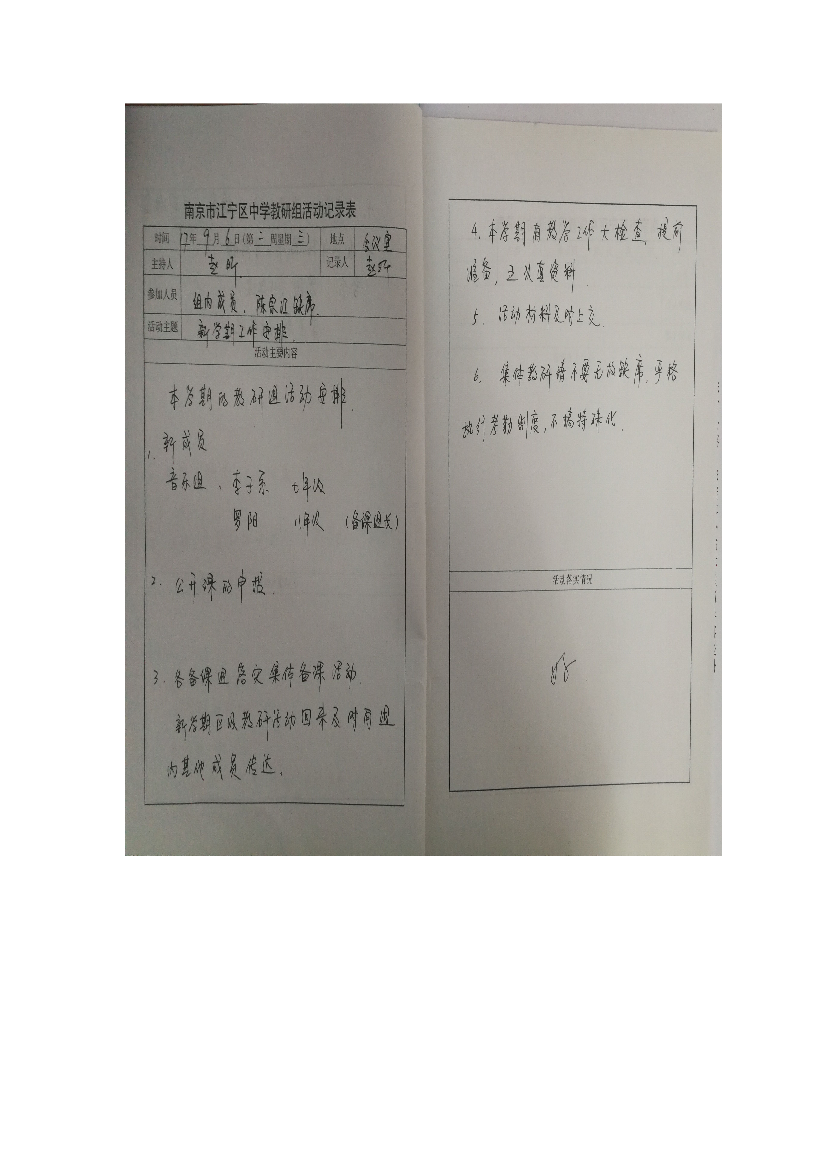 南京市江宁区中学教研组活动记录表
时间 17年9月6日(第二周星期三) 地点 会议室
主持人 赵昕 记录人 赵昕
参加人员 组内成员、陈宗江缺席.
活动主题 新学期工作安排.
活动主要内容
本学期的教研组活动安排.
1. 新成员
音乐组、李子系 七年级
罗阳 八年级 (备课组长)
2. 公开课的申报.
3. 各备课组落实集体备课活动.
新学期区级教研活动回来及时向组
内其他成员传达.
4. 本学期有教学工作大检查, 提前
准备, 认真资料.
5. 活动材料及时上交.
6. 集体教研请不要无故缺席, 严格
执行考勤制度, 不搞特殊化.
活动落实情况